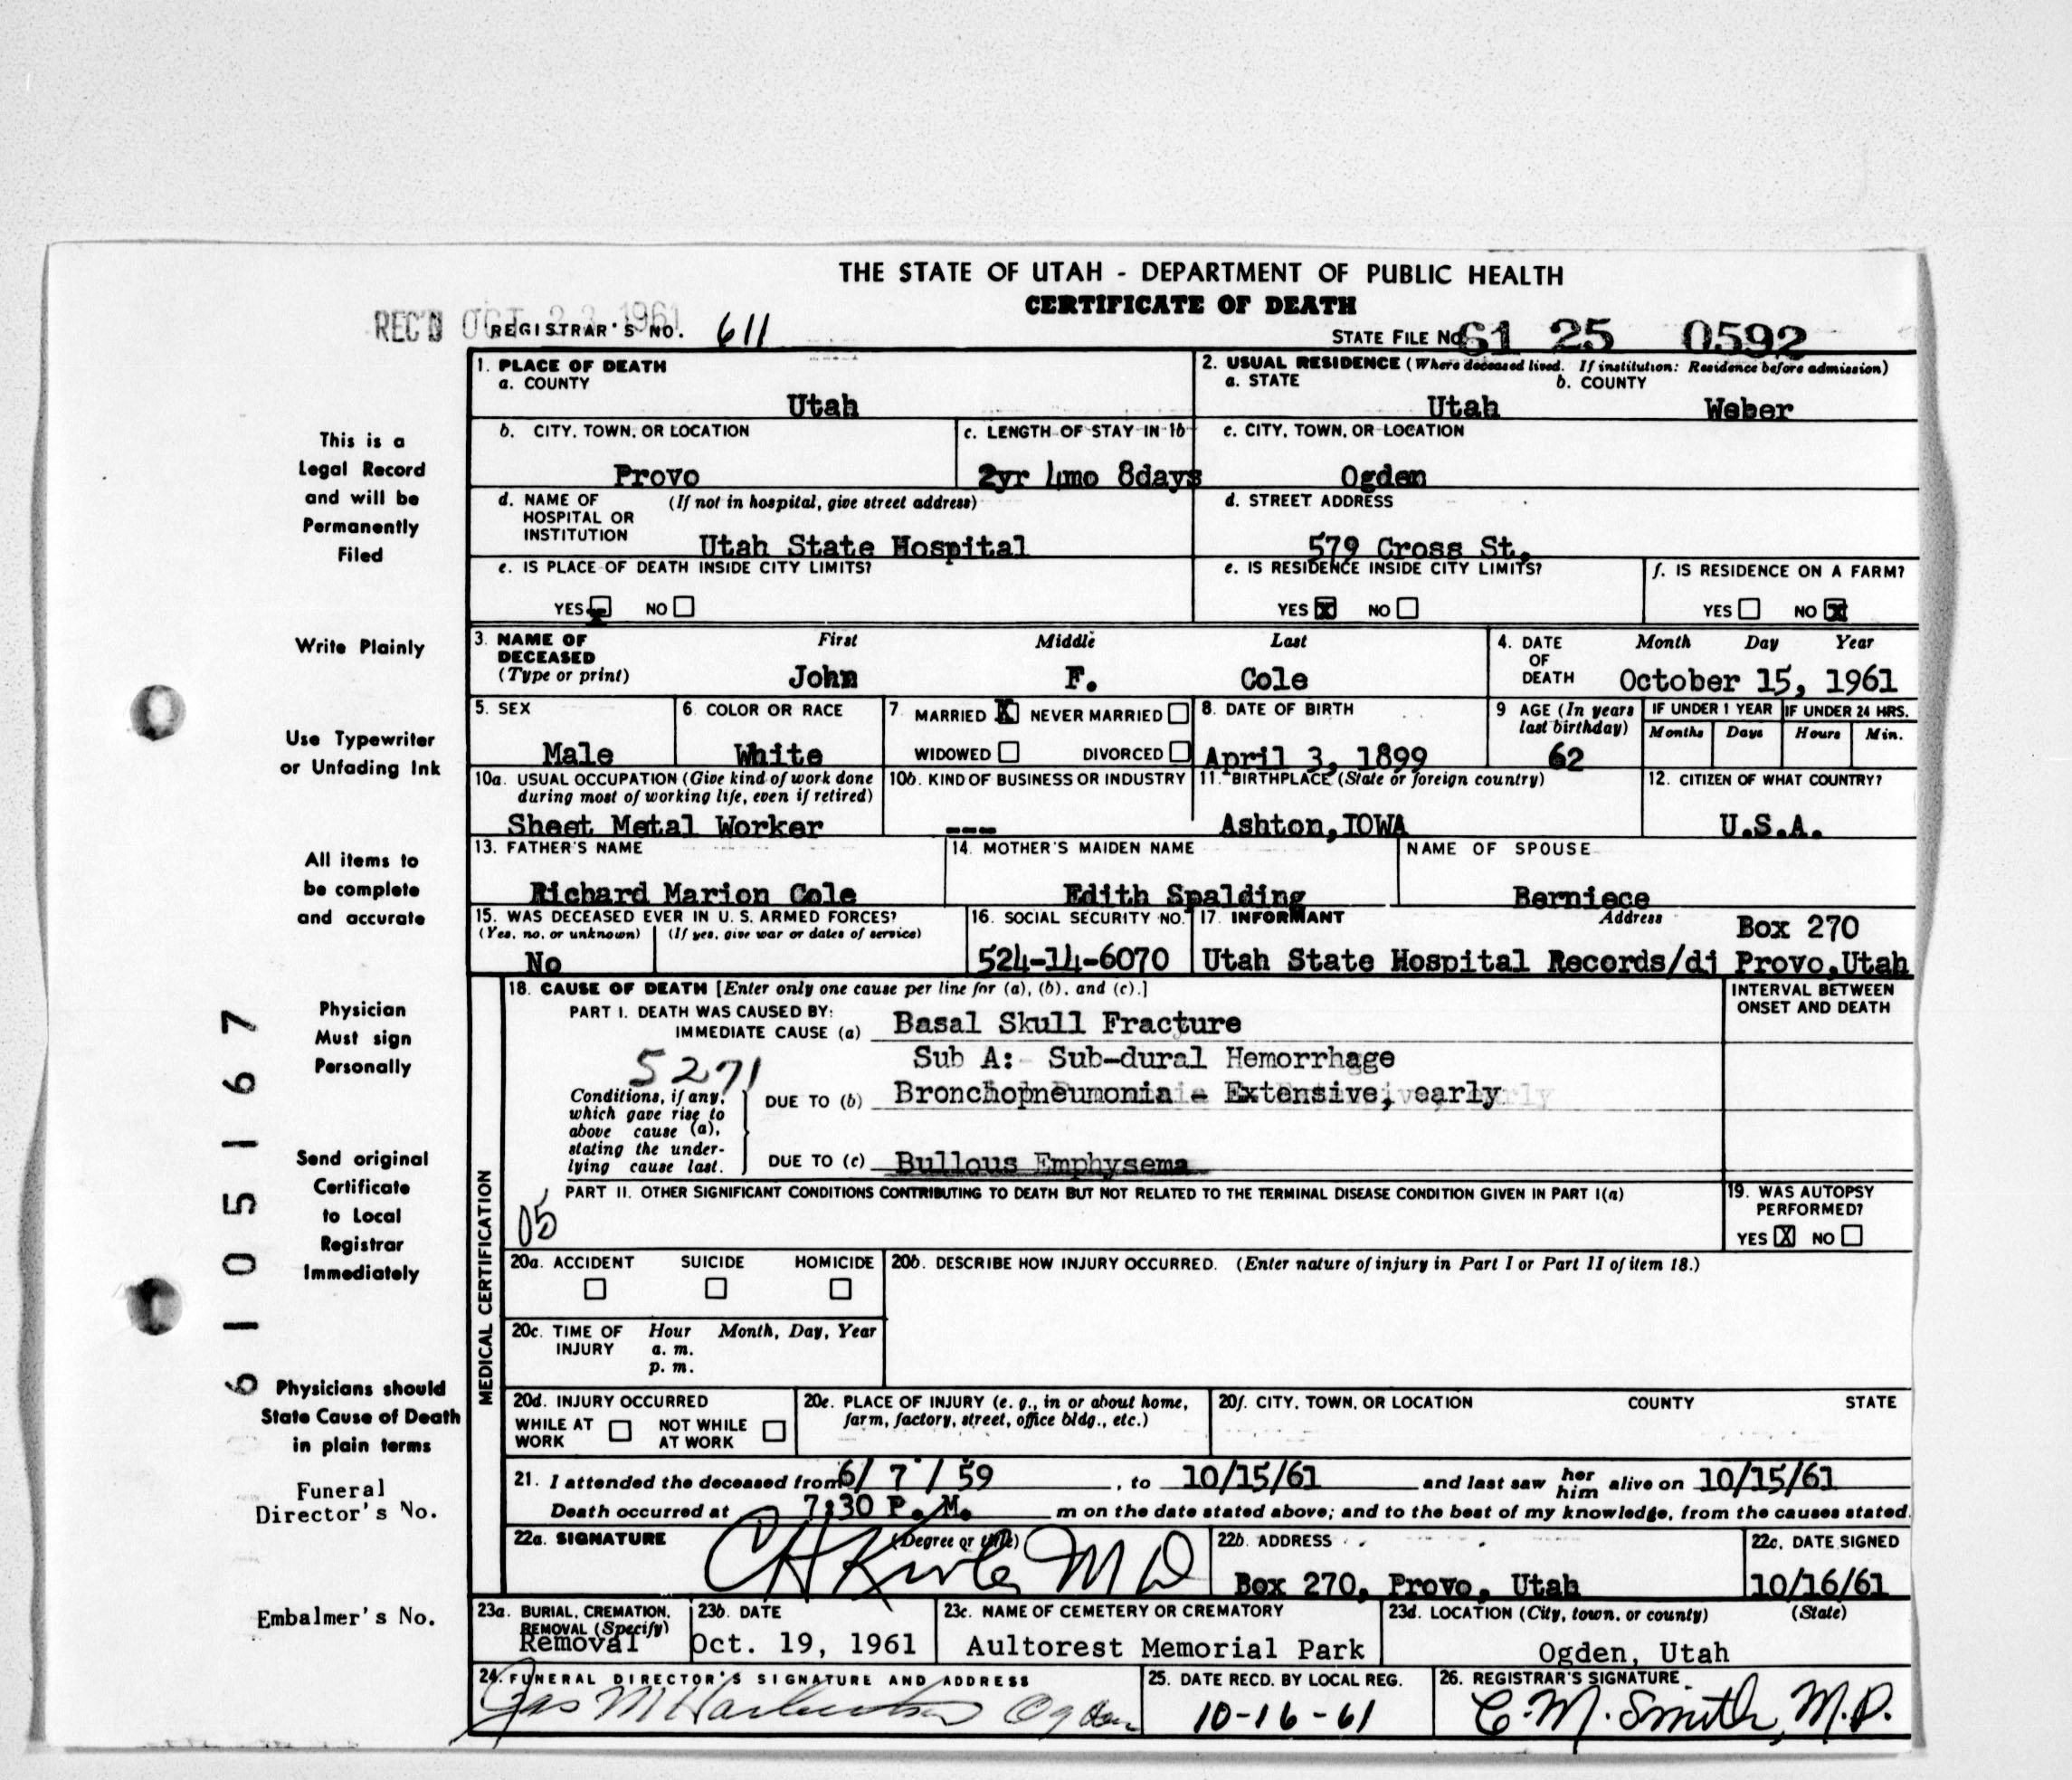 THE STATE OF UTAH - DEPARTMENT OF PUBLIC HEALTH
CERTIFICATE OF DEATH
REC'D OCT 1961
REGISTRAR'S NO. 611
STATE FILE NO. 61 25 0592
1. PLACE OF DEATH
a. COUNTY
Utah
2. USUAL RESIDENCE (Where deceased lived. If institution: Residence before admission)
a. STATE b. COUNTY
Utah Weber
b. CITY, TOWN, OR LOCATION
Provo
c. LENGTH OF STAY IN 1b
2yr 4mo 8days
c. CITY, TOWN, OR LOCATION
Ogden
d. NAME OF (If not in hospital, give street address)
HOSPITAL OR
INSTITUTION
Utah State Hospital
d. STREET ADDRESS
579 Cross St.
e. IS PLACE OF DEATH INSIDE CITY LIMITS?
YES NO
e. IS RESIDENCE INSIDE CITY LIMITS?
YES X NO
f. IS RESIDENCE ON A FARM?
YES NO X
3. NAME OF First Middle Last
DECEASED
(Type or print) John F. Cole
4. DATE Month Day Year
OF
DEATH October 15, 1961
5. SEX
Male
6. COLOR OR RACE
White
7 MARRIED X NEVER MARRIED
WIDOWED DIVORCED
8. DATE OF BIRTH
April 3, 1899
9 AGE (In years
last birthday)
62
IF UNDER 1 YEAR IF UNDER 24 HRS.
Months Days Hours Min.
10a. USUAL OCCUPATION (Give kind of work done
during most of working life, even if retired)
Sheet Metal Worker
10b. KIND OF BUSINESS OR INDUSTRY
---
11. BIRTHPLACE (State or foreign country)
Ashton,IOWA
12. CITIZEN OF WHAT COUNTRY?
U.S.A.
13. FATHER'S NAME
Richard Marion Cole
14. MOTHER'S MAIDEN NAME
Edith Spalding
NAME OF SPOUSE
Berniece
15. WAS DECEASED EVER IN U. S. ARMED FORCES?
(Yes, no, or unknown) (If yes, give war or dates of service)
No
16. SOCIAL SECURITY NO.
524-14-6070
17. INFORMANT Address
Box 270
Utah State Hospital Records/dj Provo,Utah
MEDICAL CERTIFICATION
18. CAUSE OF DEATH [Enter only one cause per line for (a), (b), and (c).]
INTERVAL BETWEEN
ONSET AND DEATH
PART I. DEATH WAS CAUSED BY:
IMMEDIATE CAUSE (a) Basal Skull Fracture
Sub A: Sub-dural Hemorrhage
5271
Conditions, if any,
which gave rise to
above cause (a),
stating the under-
lying cause last.
DUE TO (b) Bronchopneumonia - Extensive, early
DUE TO (c) Bullous Emphysema
PART II. OTHER SIGNIFICANT CONDITIONS CONTRIBUTING TO DEATH BUT NOT RELATED TO THE TERMINAL DISEASE CONDITION GIVEN IN PART I(a)
05
19. WAS AUTOPSY
PERFORMED?
YES X NO
20a. ACCIDENT SUICIDE HOMICIDE
20b. DESCRIBE HOW INJURY OCCURRED. (Enter nature of injury in Part I or Part II of item 18.)
20c. TIME OF Hour Month, Day, Year
INJURY a. m.
p. m.
20d. INJURY OCCURRED
WHILE AT NOT WHILE
WORK AT WORK
20e. PLACE OF INJURY (e. g., in or about home,
farm, factory, street, office bldg., etc.)
20f. CITY, TOWN, OR LOCATION COUNTY STATE
21. I attended the deceased from 6/ 7 / 59, to 10/15/61 and last saw her him alive on 10/15/61
Death occurred at 7:30 P. M. m on the date stated above; and to the best of my knowledge, from the causes stated.
22a. SIGNATURE (Degree or title)
M D
22b. ADDRESS
Box 270, Provo, Utah
22c. DATE SIGNED
10/16/61
23a. BURIAL, CREMATION,
REMOVAL (Specify)
Removal
23b. DATE
Oct. 19, 1961
23c. NAME OF CEMETERY OR CREMATORY
Aultorest Memorial Park
23d. LOCATION (City, town, or county) (State)
Ogden, Utah
24. FUNERAL DIRECTOR'S SIGNATURE AND ADDRESS
Jas M Ogden
25. DATE RECD. BY LOCAL REG.
10-16-61
26. REGISTRAR'S SIGNATURE
C. M. Smith, M.D.
This is a
Legal Record
and will be
Permanently
Filed
Write Plainly
Use Typewriter
or Unfading Ink
All items to
be complete
and accurate
Physician
Must sign
Personally
Send original
Certificate
to Local
Registrar
Immediately
Physicians should
State Cause of Death
in plain terms
Funeral
Director's No.
Embalmer's No.
6105167